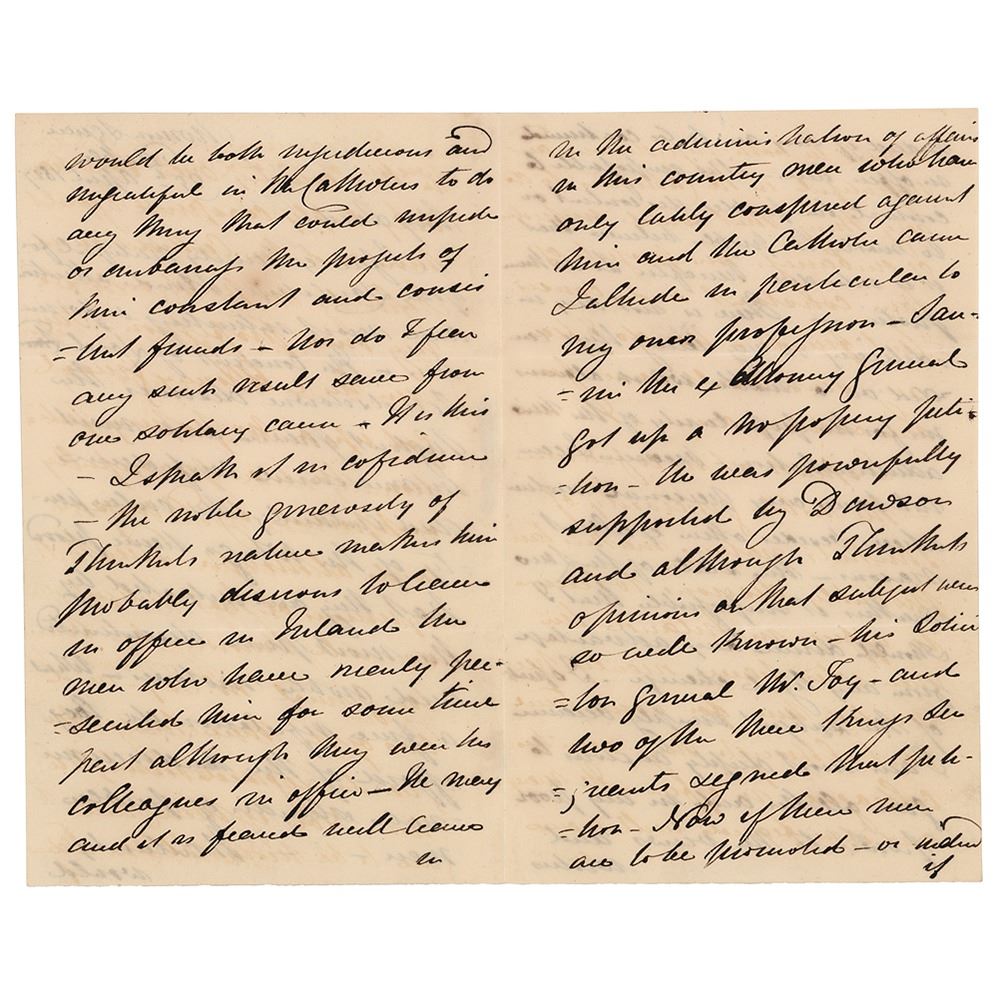 would be both injudicious and
ungrateful in the Catholics to do
any thing that could impede
or embarrass the projects of
their constant and consis
=tent friends – Nor do I fear
any such result save from
one solitary cause – It is this
– I speak it in cofidence
– the noble generosity of
Plunkets nature makes him
probably desirous to leave
in office in Ireland the
men who have merely per-
=secuted him for some time
past although they were his
colleagues in office – He may
and it is feared will leave
in
in the adminis tration of affairs
in this country men who have
only lately conspired against
him and the Catholic cause
I allude in particular to
my own profession – Sau-
=rin the ex Attorney General
got up a No popery peti-
=tion – He was powerfully
supported by Dawson
and although Plunkets
opinions on that subject were
so well known – his Solici
=tor general Mr. Joy – and
two of the three Kings Ser
=jeants signed that peti-
=tion – Now if these men
are to be promoted – or indeed
if